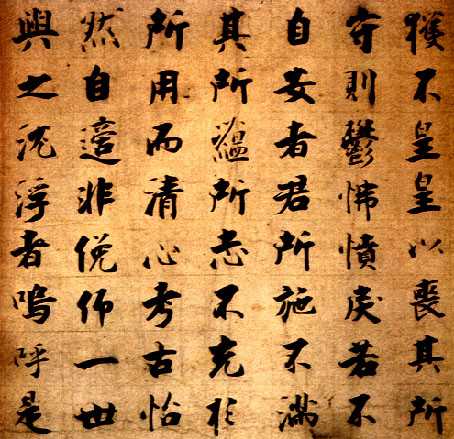 獲不皇皇以喪其所
守則鬱怫憤戾若不
自安者君所施不滿
其所蘊所志不充於
所用而清心考古怡
然自適非俛仰一世
與之沉浮者嗚呼是